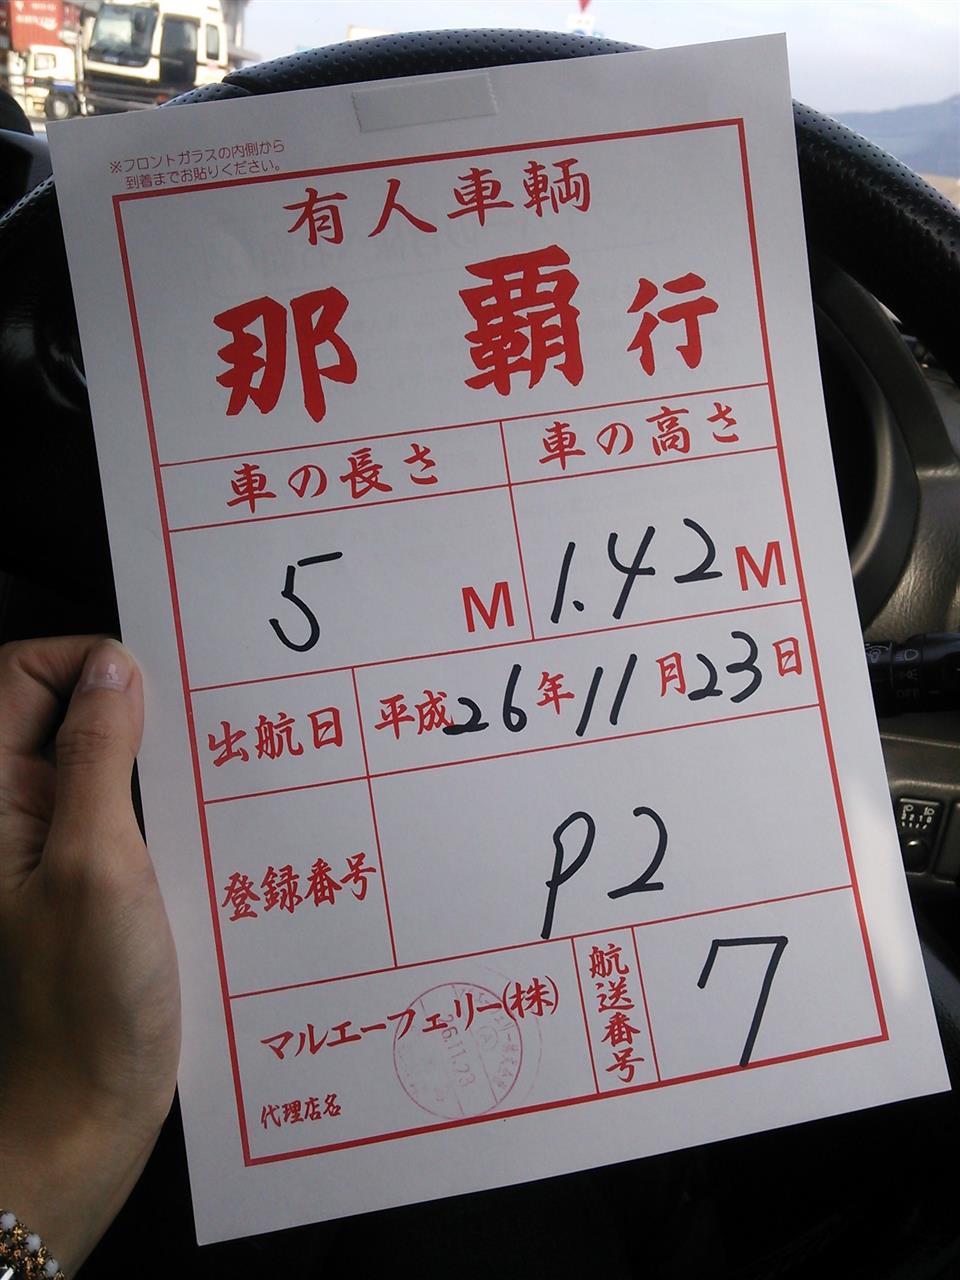 ※フロントガラスの内側から
到着までお貼りください。
有人車輌
那覇行
車の長さ
車の高さ
5 M
1.42 M
出航日
平成26年11月23日
登録番号
P2
マルエーフェリー(株)
26.11.23
代理店名
航送番号
7